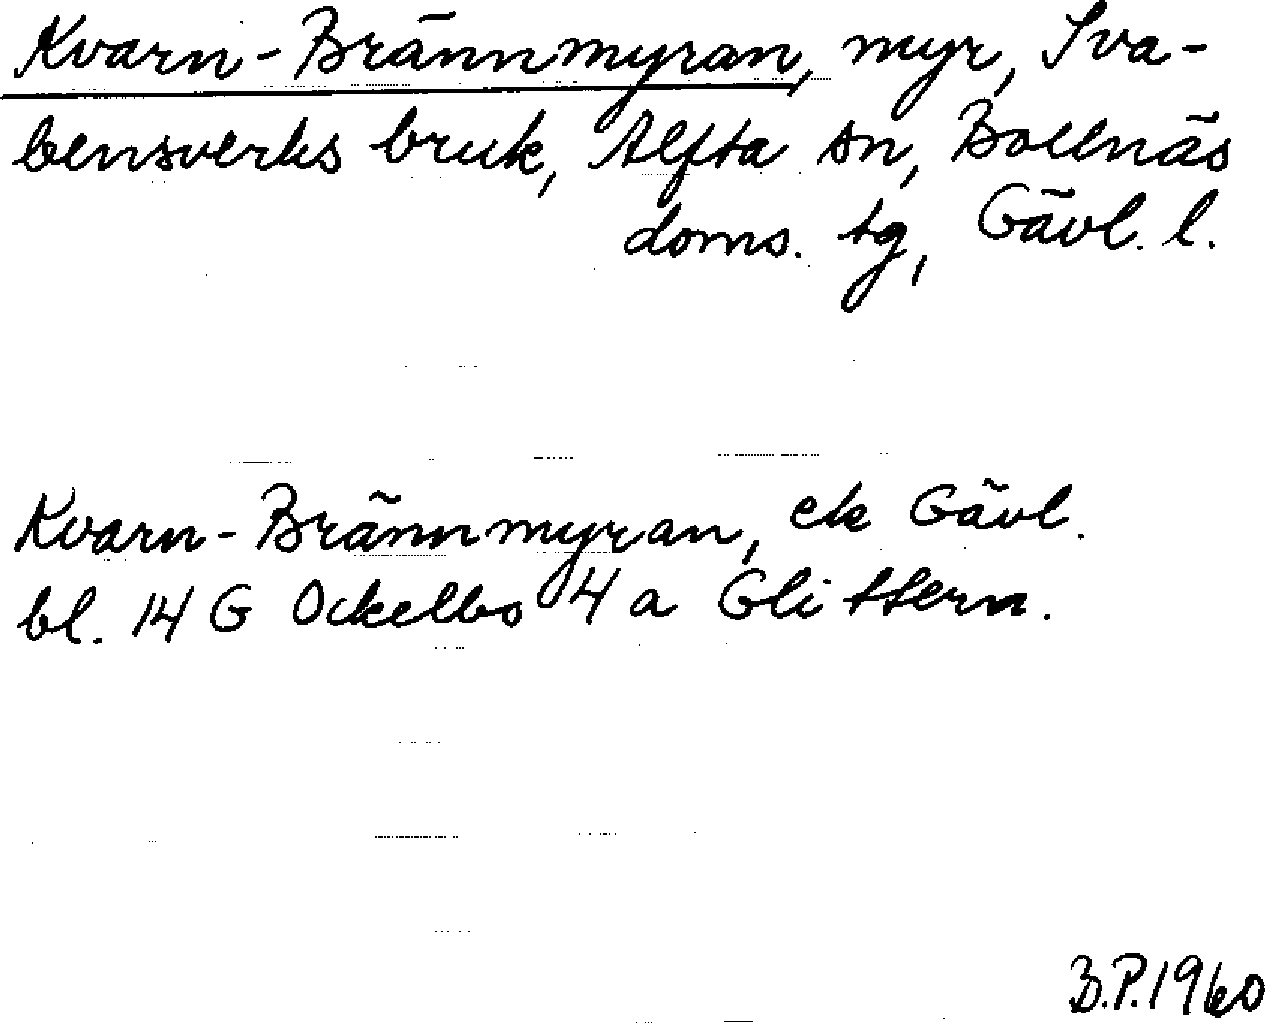 Kvarn-Brännmyran, myr, Sva-
bensverks bruk, Alfta sn, Bollnäs
doms. tg, Gävl. l.
Kvarn-Brännmyran, ek Gävl.
bl. 14 G Ockelbo 4 a Glittern.
B.P.1960